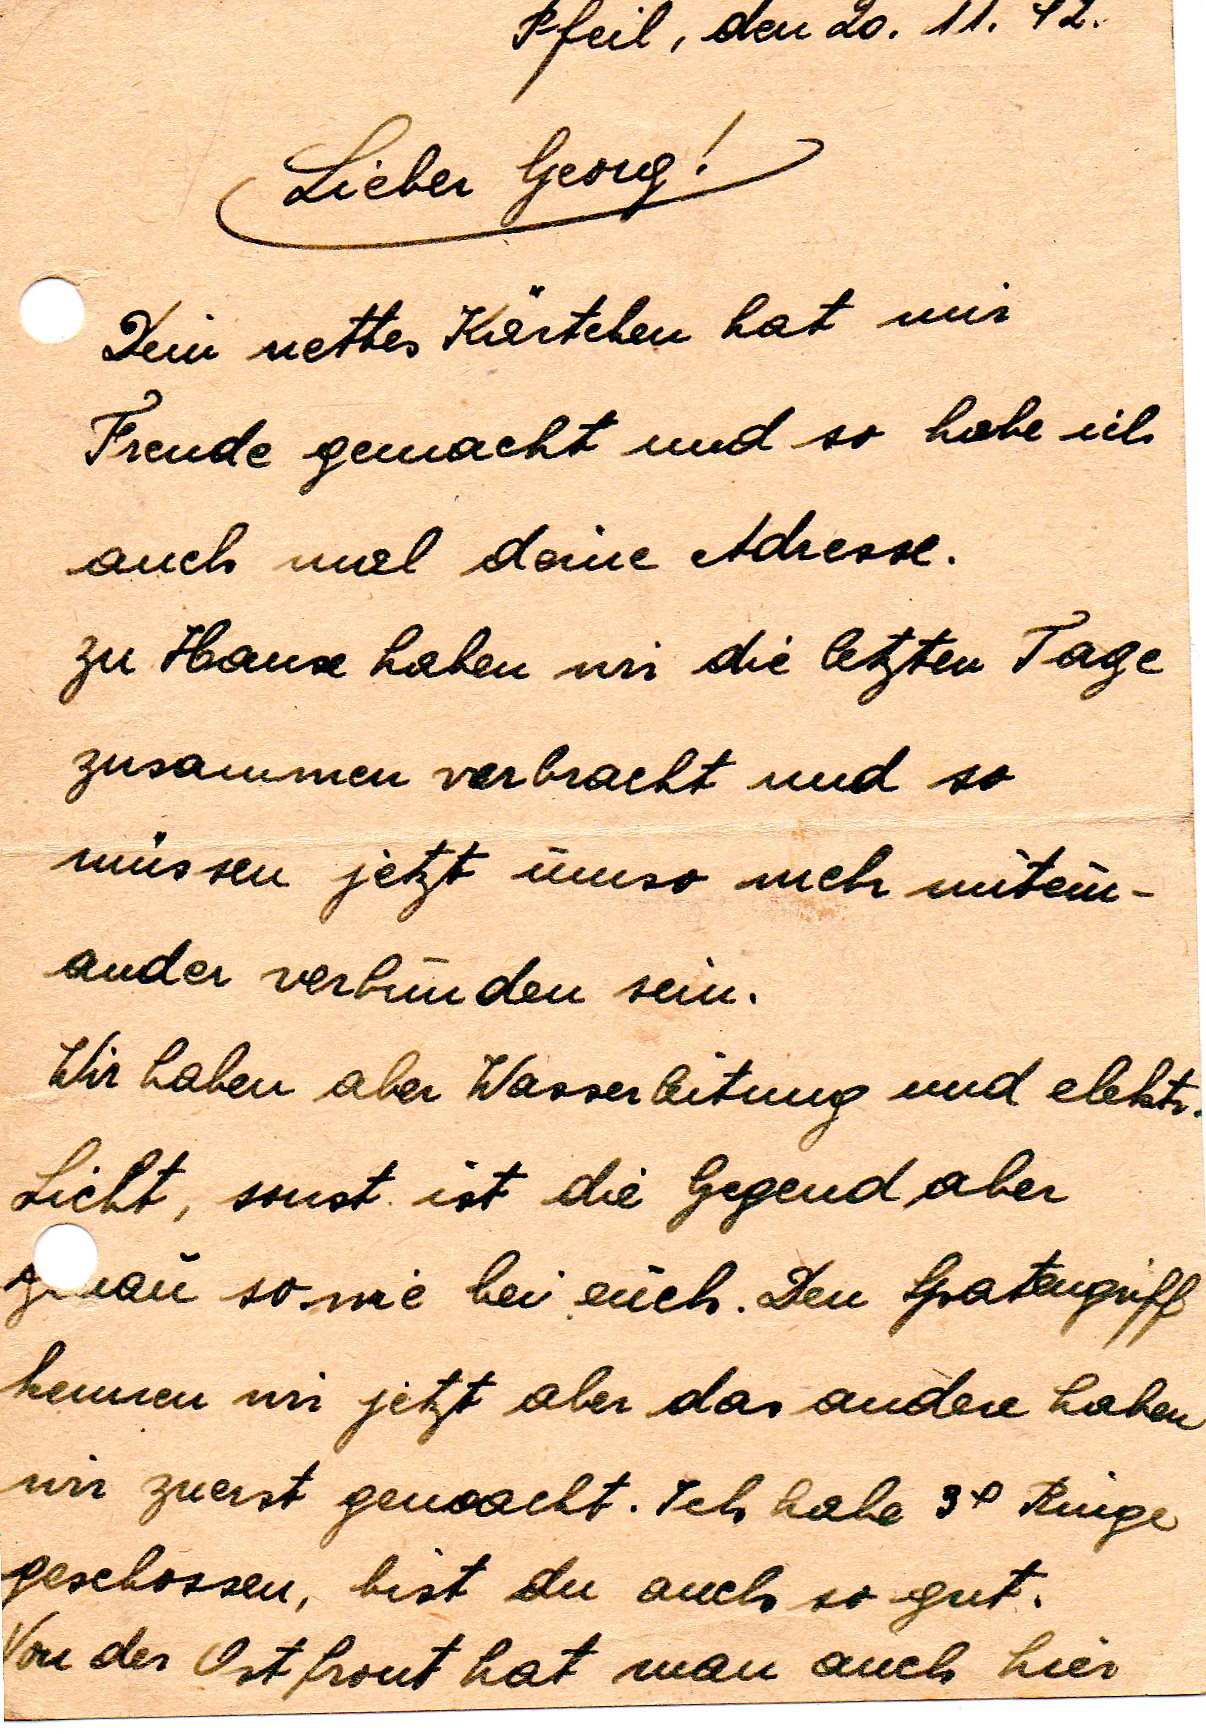 Pfeil, den 20. 11. 42.
Lieber Georg!
Dein nettes Kärtchen hat mir
Freude gemacht und so habe ich
auch mal deine Adresse.
zu Hause haben wir die letzten Tage
zusammen verbracht und so
müssen jetzt umso mehr mitein-
ander verbunden sein.
Wir haben aber Wasserleitung und elektr.
Licht, sonst ist die Gegend aber
genau so wie bei euch. Den Spatengriff
kennen wir jetzt aber das andere haben
wir zuerst gemacht. Ich habe Ringe
geschossen, bist du auch so gut.
Von der Ostfront hat man auch hier